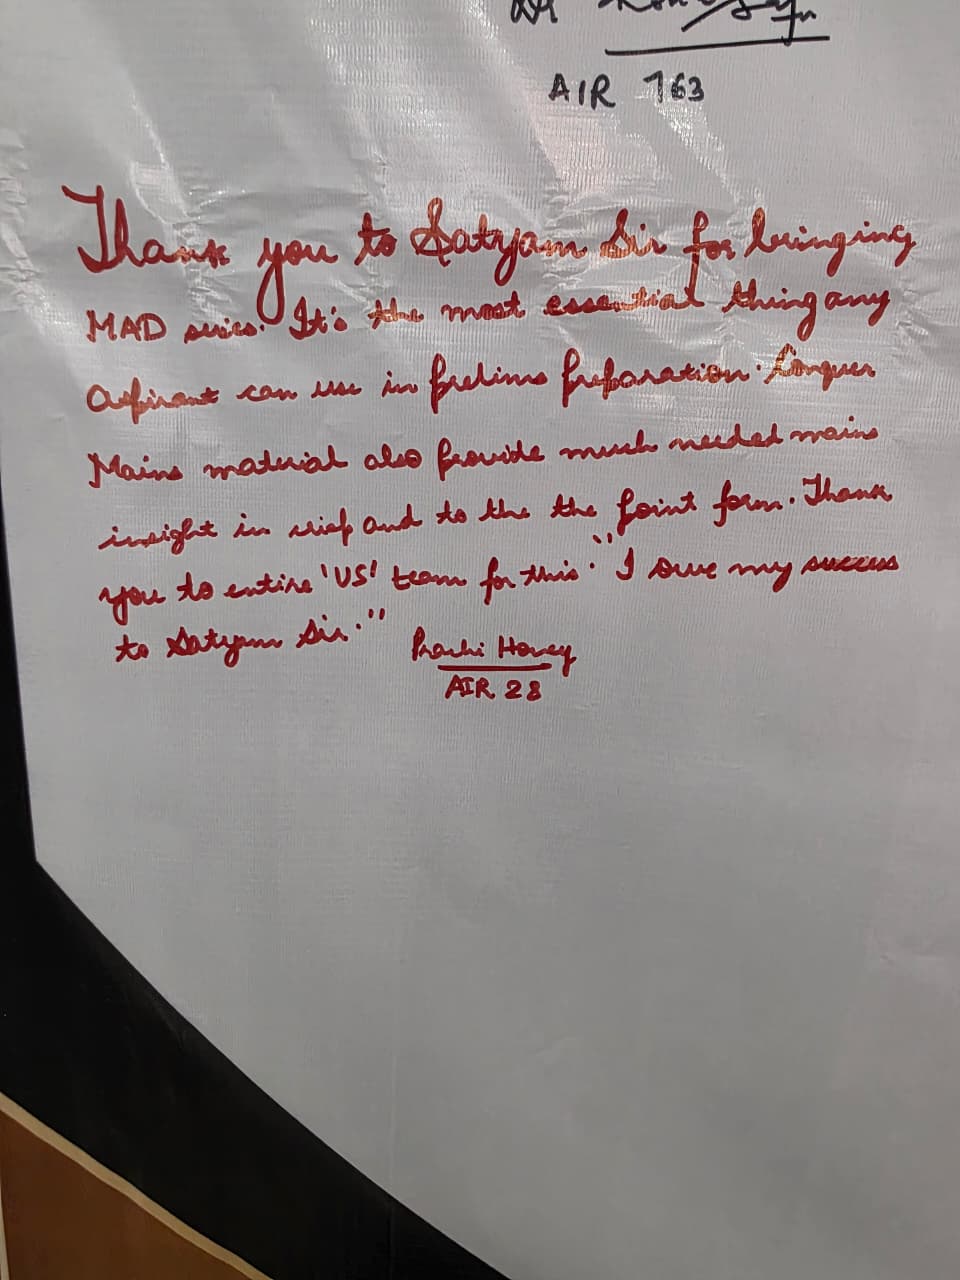 Dr
AIR 163
Thank you to Satyam Sir for bringing
MAD series. It's the most essential thing any
aspirant can use in prelims preparation. Conquer
Mains material also provide much needed mains
insight in crisp and to the the point form. Thank
you to entire 'US' team for this. "I owe my success
to Satyam Sir."
Prachi Honey
AIR 28